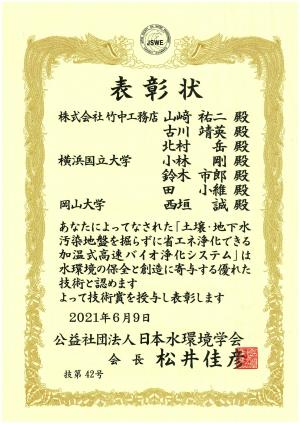 JSWE
表彰状
株式会社竹中工務店 山﨑 祐二 殿
古川 靖英 殿
北村 岳 殿
横浜国立大学 小林 剛 殿
鈴木 市郎 殿
田 小維 殿
岡山大学 西垣 誠 殿
あなたによってなされた「土壌・地下水
汚染地盤を掘らずに省エネ浄化できる
加温式高速バイオ浄化システム」は
水環境の保全と創造に寄与する優れた
技術と認めます
よって技術賞を授与し表彰します
2021年6月9日
公益社団法人日本水環境学会
会長 松井佳彦
技第42号